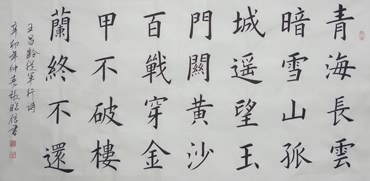 青海長雲
暗雪山孤
城遥望玉
門關黄沙
百戰穿金
甲不破樓
蘭終不還
王昌齡從軍行詩
辛卯年仲春張昭書